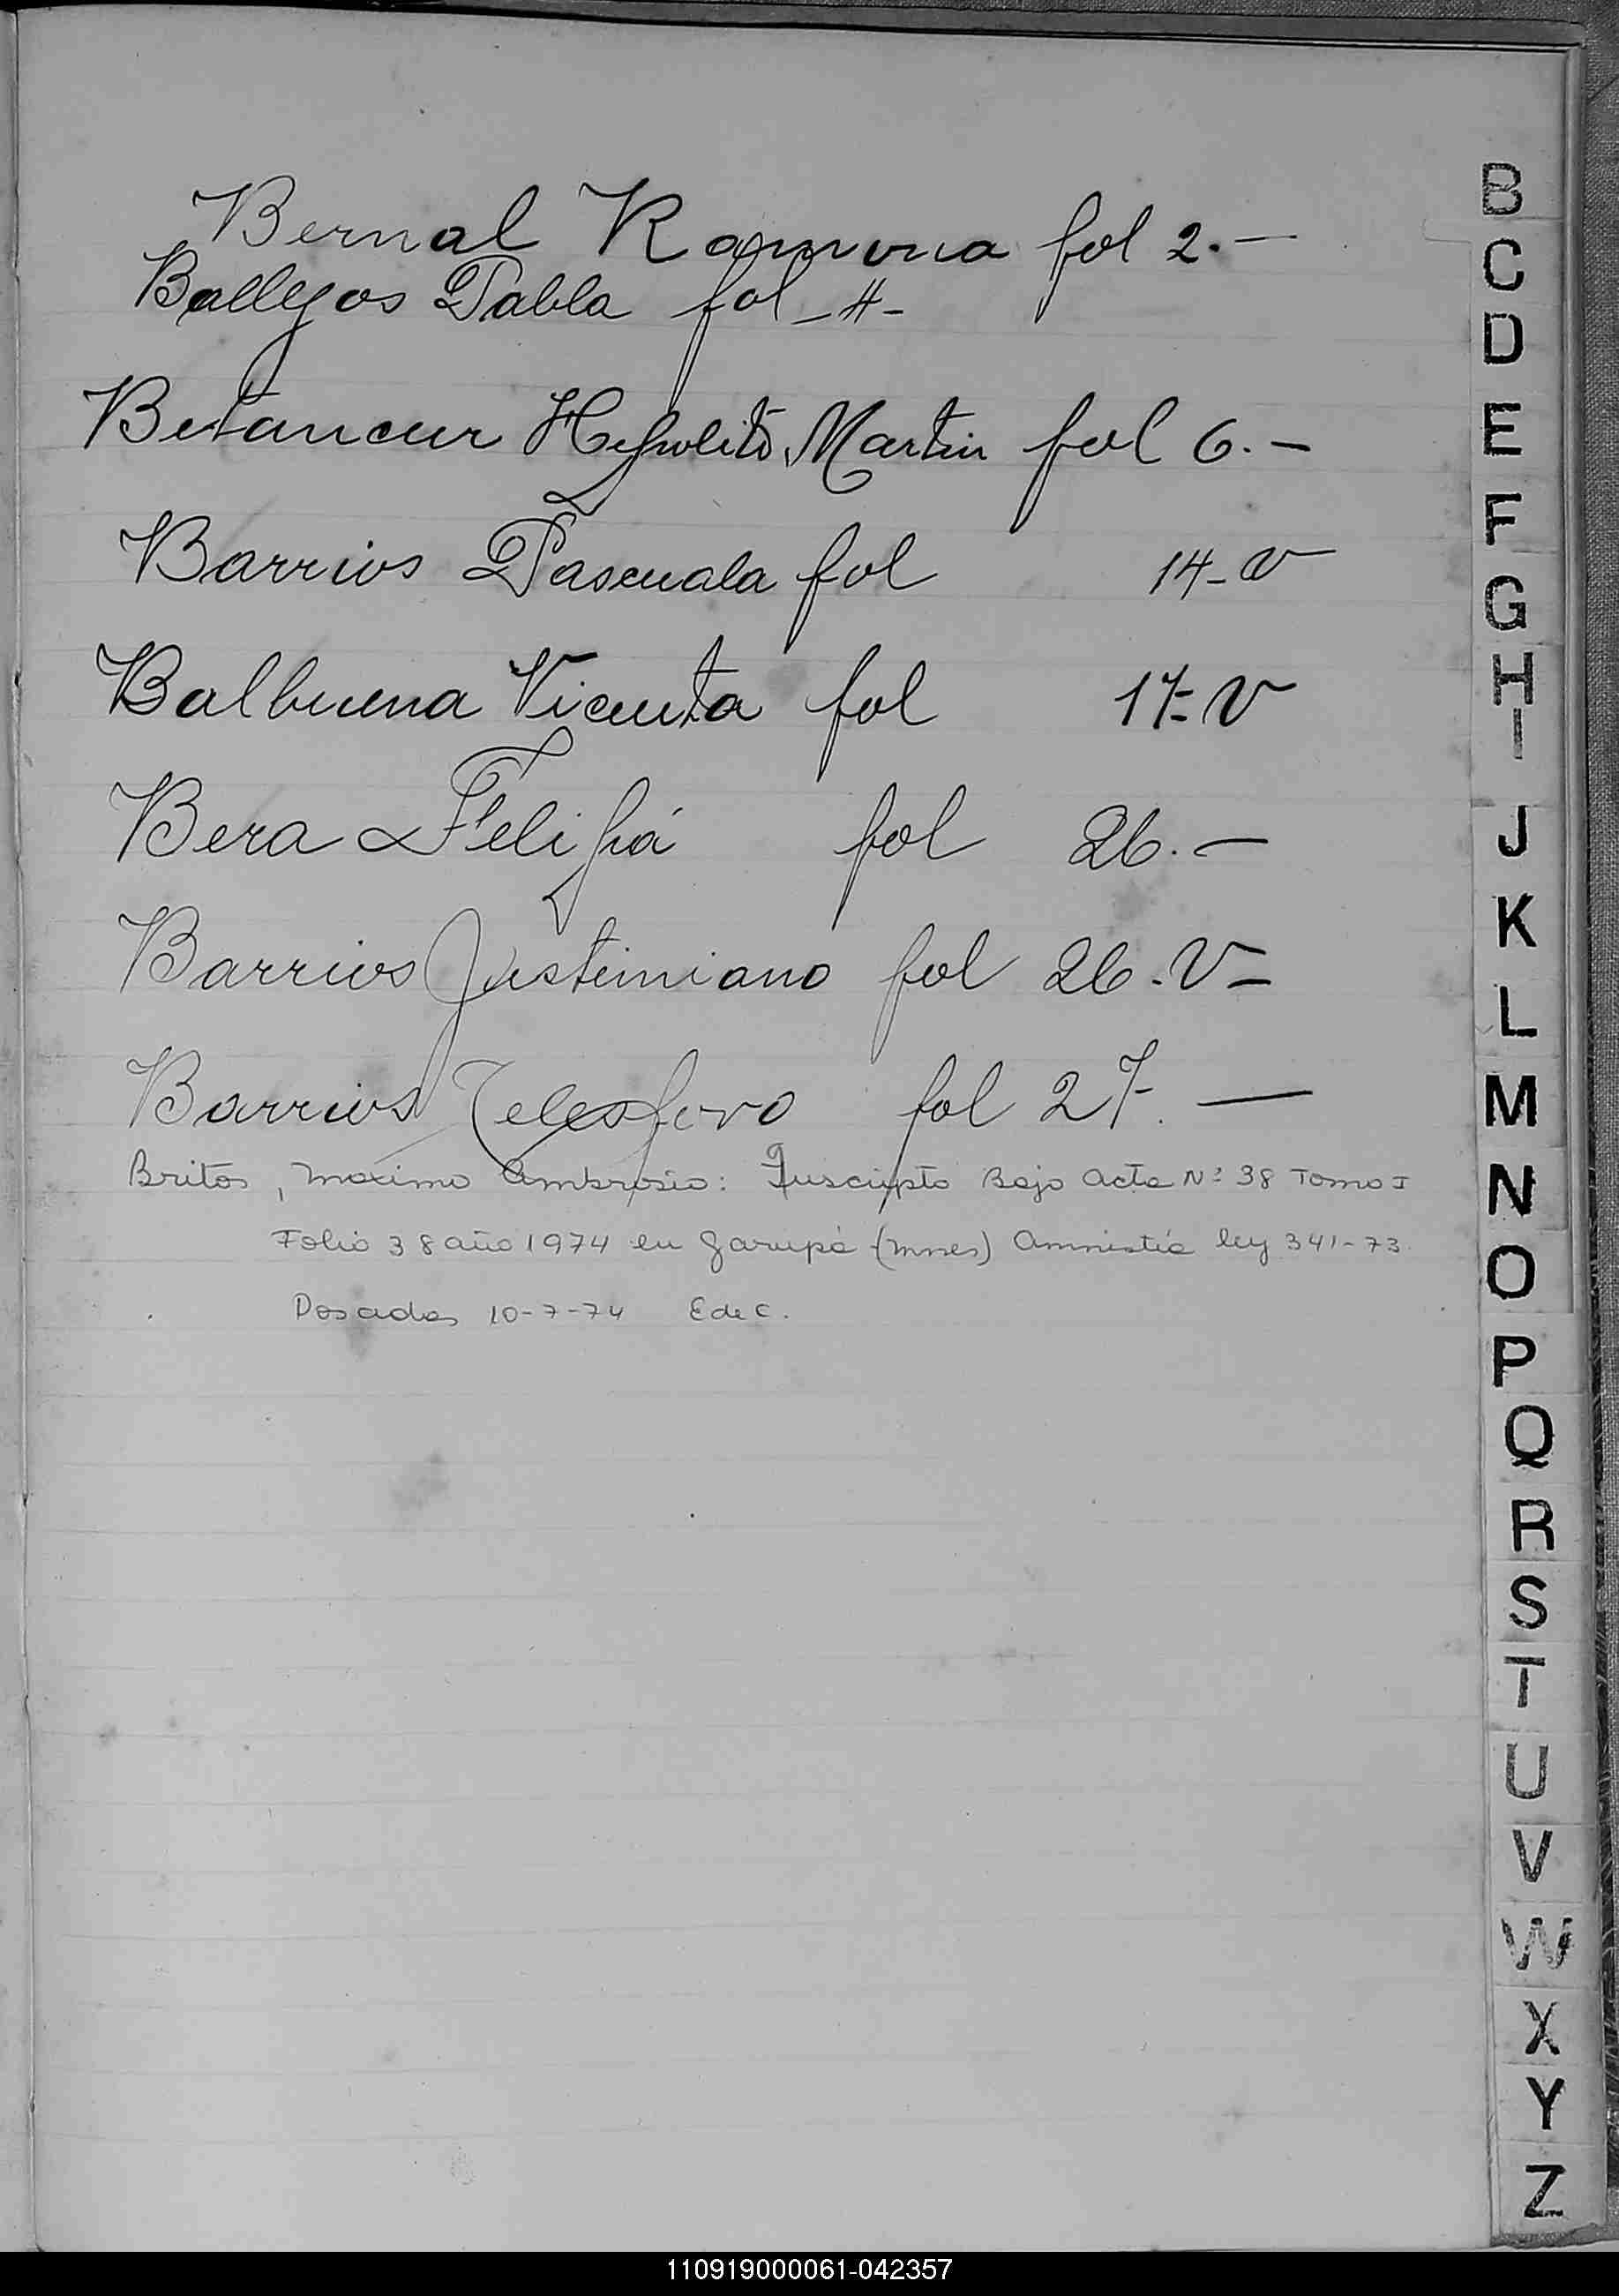 Bernal Ramona fol 2.—
Ballejos Pabla fol - 4 -
Betancur Hypolito Martin fol 6.—
Barrios Pascuala fol 14-v
Balbuena Vicenta fol 17-v
Bera Felipa fol 26.—
Barrios Justiniano fol 26.v—
Barrios Telesforo fol 27.—
Britos, Maximo Ambrosio: Inscripto Bajo Acta Nº 38 Tomo I
Folio 38 año 1974 en Garupá (Mnes) Amnistía ley 341-73.
Posadas 10-7-74 E de C.
B
C
D
E
F
G
H
I
J
K
L
M
N
O
P
Q
R
S
T
U
V
W
X
Y
Z
110919000061-042357